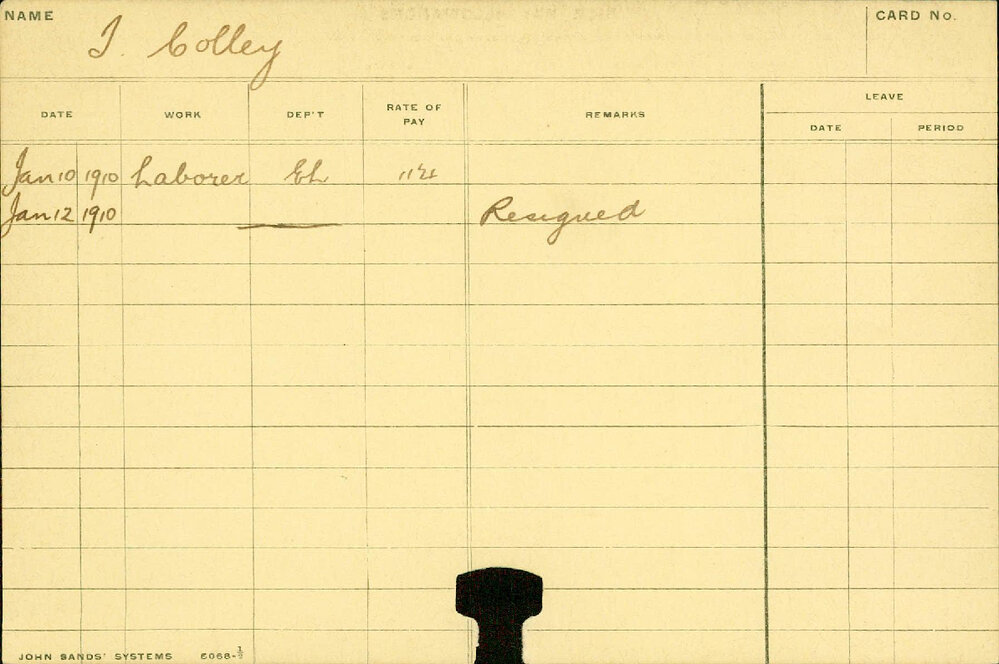 NAME CARD No.
J. Colley
DATE WORK DEP'T RATE OF PAY REMARKS LEAVE
DATE PERIOD
Jan 10 1910 Laborer
Jan 12 1910 Resigned
JOHN SANDS' SYSTEMS 6068-½